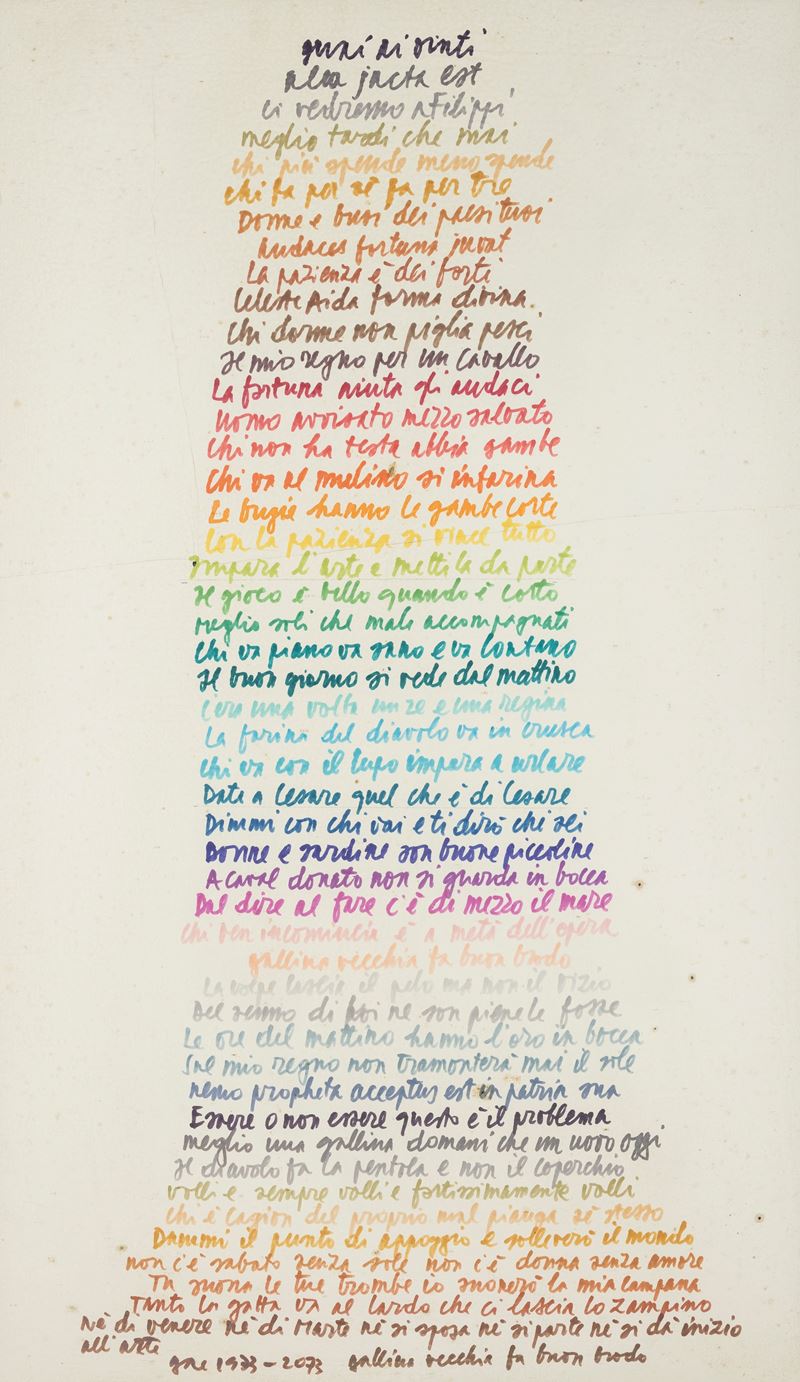 guai ai vinti
alea jacta est
ci vedremo a Filippi
meglio tardi che mai
chi più spende meno spende
chi fa per sé fa per tre
Donne e buoi dei paesi tuoi
audaces fortuna juvat
La pazienza è dei forti
Celeste Aida forma divina
Chi dorme non piglia pesci
Il mio regno per un cavallo
La fortuna aiuta gli audaci
Uomo avvisato mezzo salvato
Chi non ha testa abbia gambe
Chi va al mulino si infarina
Le bugie hanno le gambe corte
Con la pazienza si vince tutto
Impara l'arte e mettila da parte
Il gioco è bello quando è corto
meglio soli che male accompagnati
Chi va piano va sano e va lontano
Il buon giorno si vede dal mattino
C'era una volta un re e una regina
La farina del diavolo va in crusca
Chi va con il lupo impara a urlare
Date a Cesare quel che è di Cesare
Dimmi con chi vai e ti dirò che sei
Donne e sardine son buone piccoline
A caval donato non si guarda in bocca
Dal dire al fare c'è di mezzo il mare
Chi ben incomincia è a metà dell'opera
gallina vecchia fa buon brodo
La volpe lascia il pelo ma non il vizio
Del senno di poi ne son piene le fosse
Le ore del mattino hanno l'oro in bocca
Sul mio regno non tramonterà mai il sole
nemo propheta acceptus est in patria sua
Essere o non essere questo è il problema
meglio una gallina domani che un uovo oggi
Il diavolo fa la pentola e non il coperchio
volli e sempre volli e fortissimamente volli
chi è cagion del proprio mal pianga sé stesso
Dammi il punto di appoggio e solleverò il mondo
non c'è sabato senza sole non c'è donna senza amore
Tu suona le tue trombe io suonerò la mia campana
Tanto la gatta va al lardo che ci lascia lo zampino
Né di venere né di Marte né si sposa né si parte né si dà inizio
all'arte
1933-2073 gallina vecchia fa buon brodo